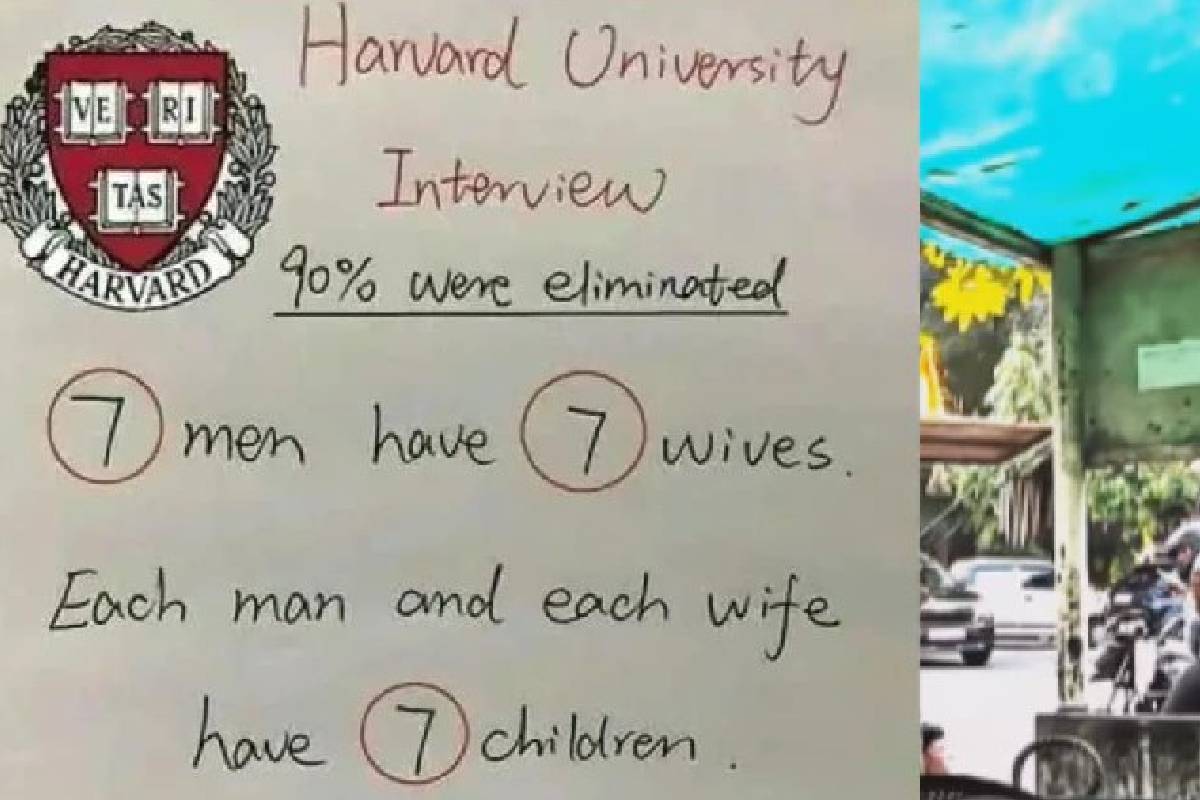 VE RI
TAS
HARVARD
Harvard University
Interview
90% were eliminated
7 men have 7 wives.
Each man and each wife
have 7 children.